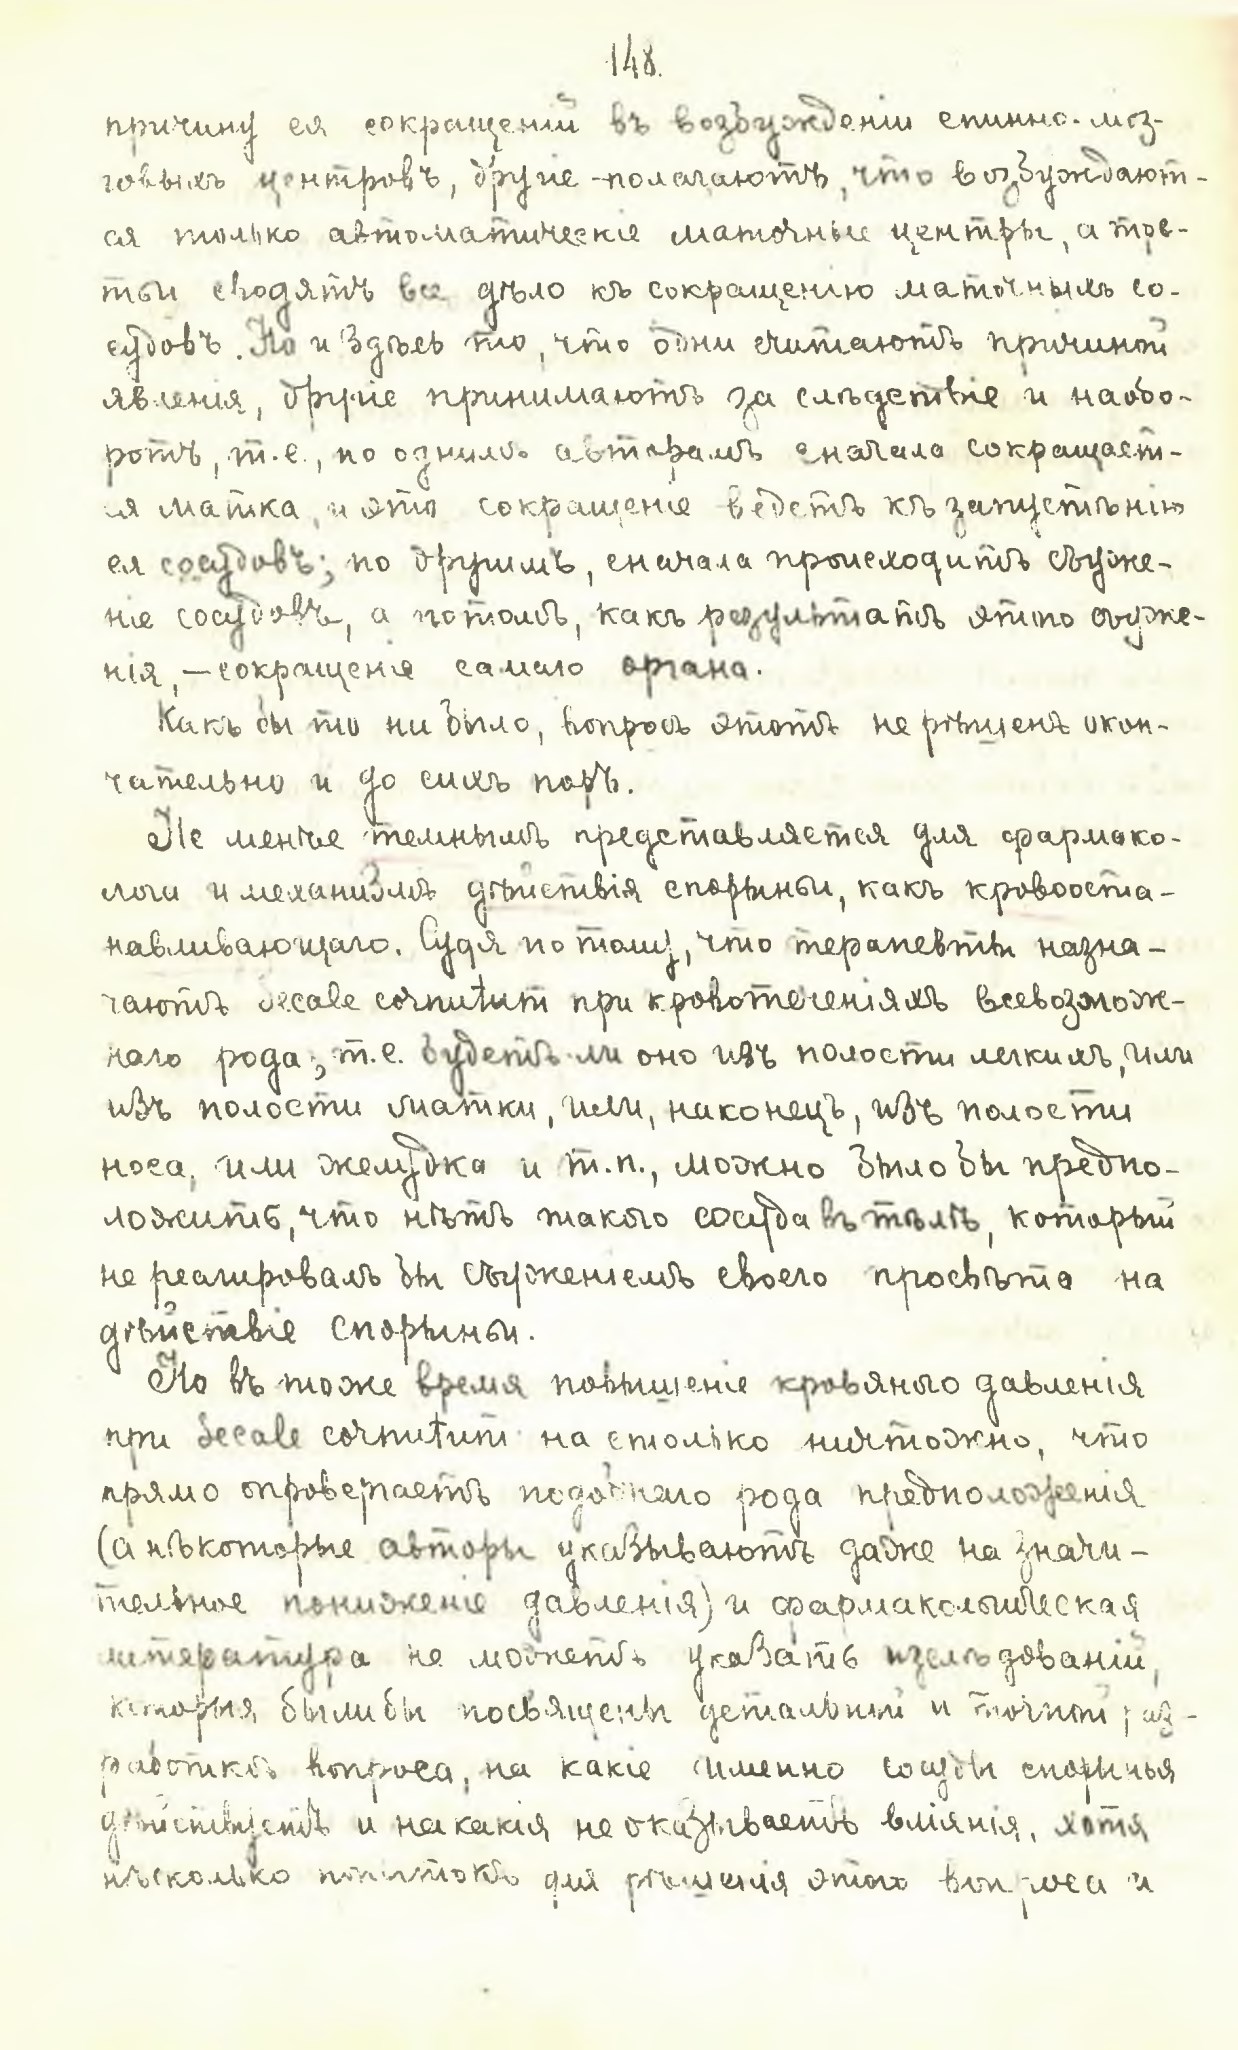 148.
причину ея сокращеній въ возбужденіи спинно-моз-
говыхъ центровъ, другіе -полагаютъ, что возбуждают-
ся только автоматическіе маточные центры, а тре-
тьи сводятъ все дѣло къ сокращенію маточныхъ со-
судовъ. Но и здѣсь то, что одни считаютъ причиной
явленія, другіе принимаютъ за слѣдствіе и наобо-
ротъ, т.е., по однимъ авторамъ сначала сокращает-
ся матка, и это сокращеніе ведетъ къ запустѣнію
ея сосудовъ; по другимъ, сначала происходитъ съуже-
ніе сосудовъ, а потомъ, какъ результатъ этого съуже-
нія, — сокращеніе самаго органа.
Какъ бы то ни было, вопросъ этотъ не рѣшенъ окон-
чательно и до сихъ поръ.
Не менѣе темнымъ представляется для фармако-
логи и механизмъ дѣйствія спорыньи, какъ кровооста-
навливающаго. Судя по тому, что терапевты назна-
чаютъ Secale cornutum при кровотеченіяхъ всевозмож-
наго рода, т.е. будетъ ли оно изъ полости легкихъ, или
изъ полости матки, или, наконецъ, изъ полости
носа, или желудка и т.п., можно было бы предпо-
ложить, что нѣтъ такого сосуда въ тѣлѣ, который
не реагировалъ бы съуженіемъ своего просвѣта на
дѣйствіе спорыньи.
Но въ тоже время повышеніе кровяного давленія
при Secale cornutum на столько ничтожно, что
прямо опровергаетъ подобнаго рода предположенія
(а нѣкоторые авторы указываютъ даже на значи-
тельное пониженіе давленія) и фармакологическая
литература не можетъ указать изслѣдованій,
которыя были бы посвящены детальной и точной раз-
работкѣ вопроса, на какіе именно сосуды спорынья
дѣйствуетъ и на какія не оказываетъ вліянія, хотя
нѣсколько попытокъ для рѣшенія этого вопроса и